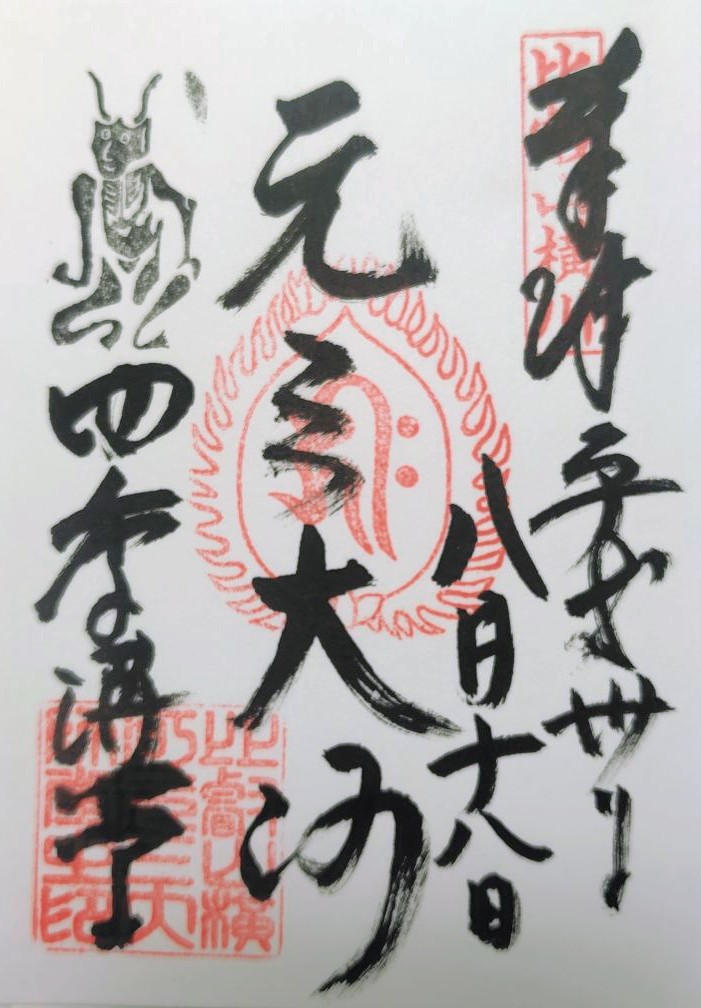 比叡山横川
奉拝 平成卅年
八月十八日
元三大師
四季講堂
比叡山横
川元三大
師堂之印